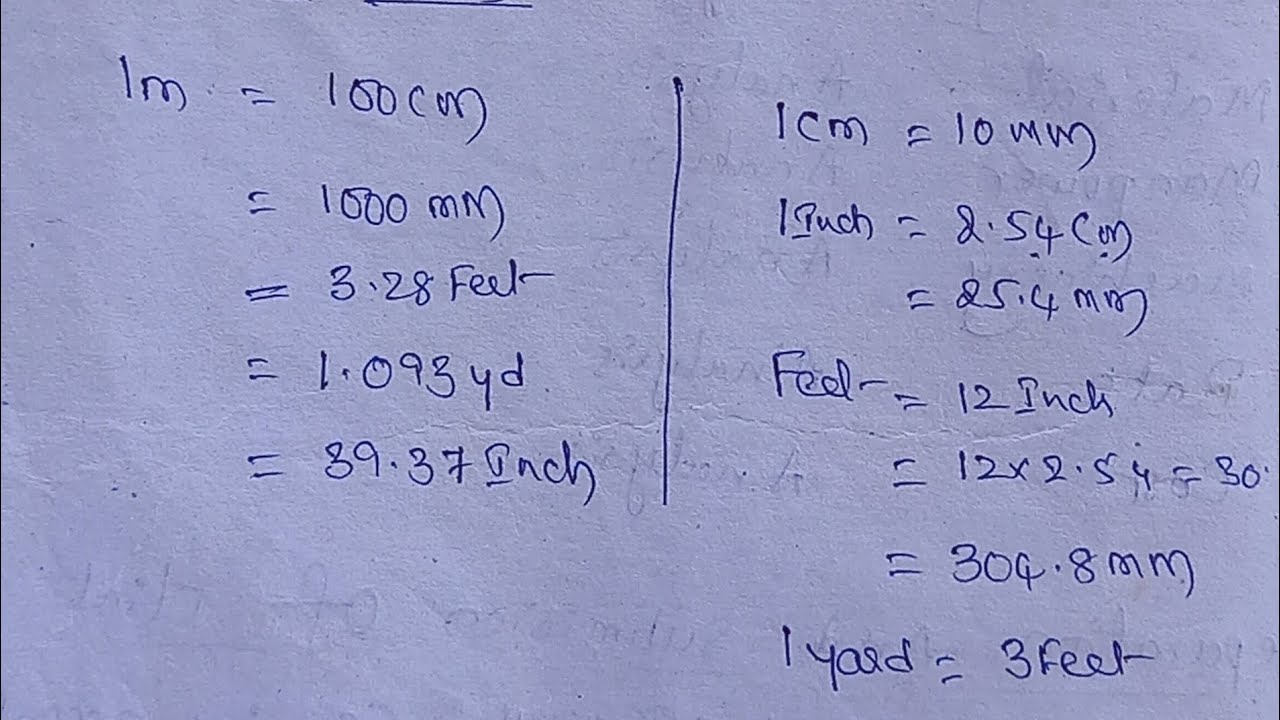 1m = 100 cm
= 1000 mm
= 3.28 Feet
= 1.093 yd
= 39.37 Inch
1 cm = 10 mm
1 Inch = 2.54 cm
= 25.4 mm
Feet = 12 Inch
= 12 x 2.54 = 30.
= 304.8 mm
1 yard = 3 Feet